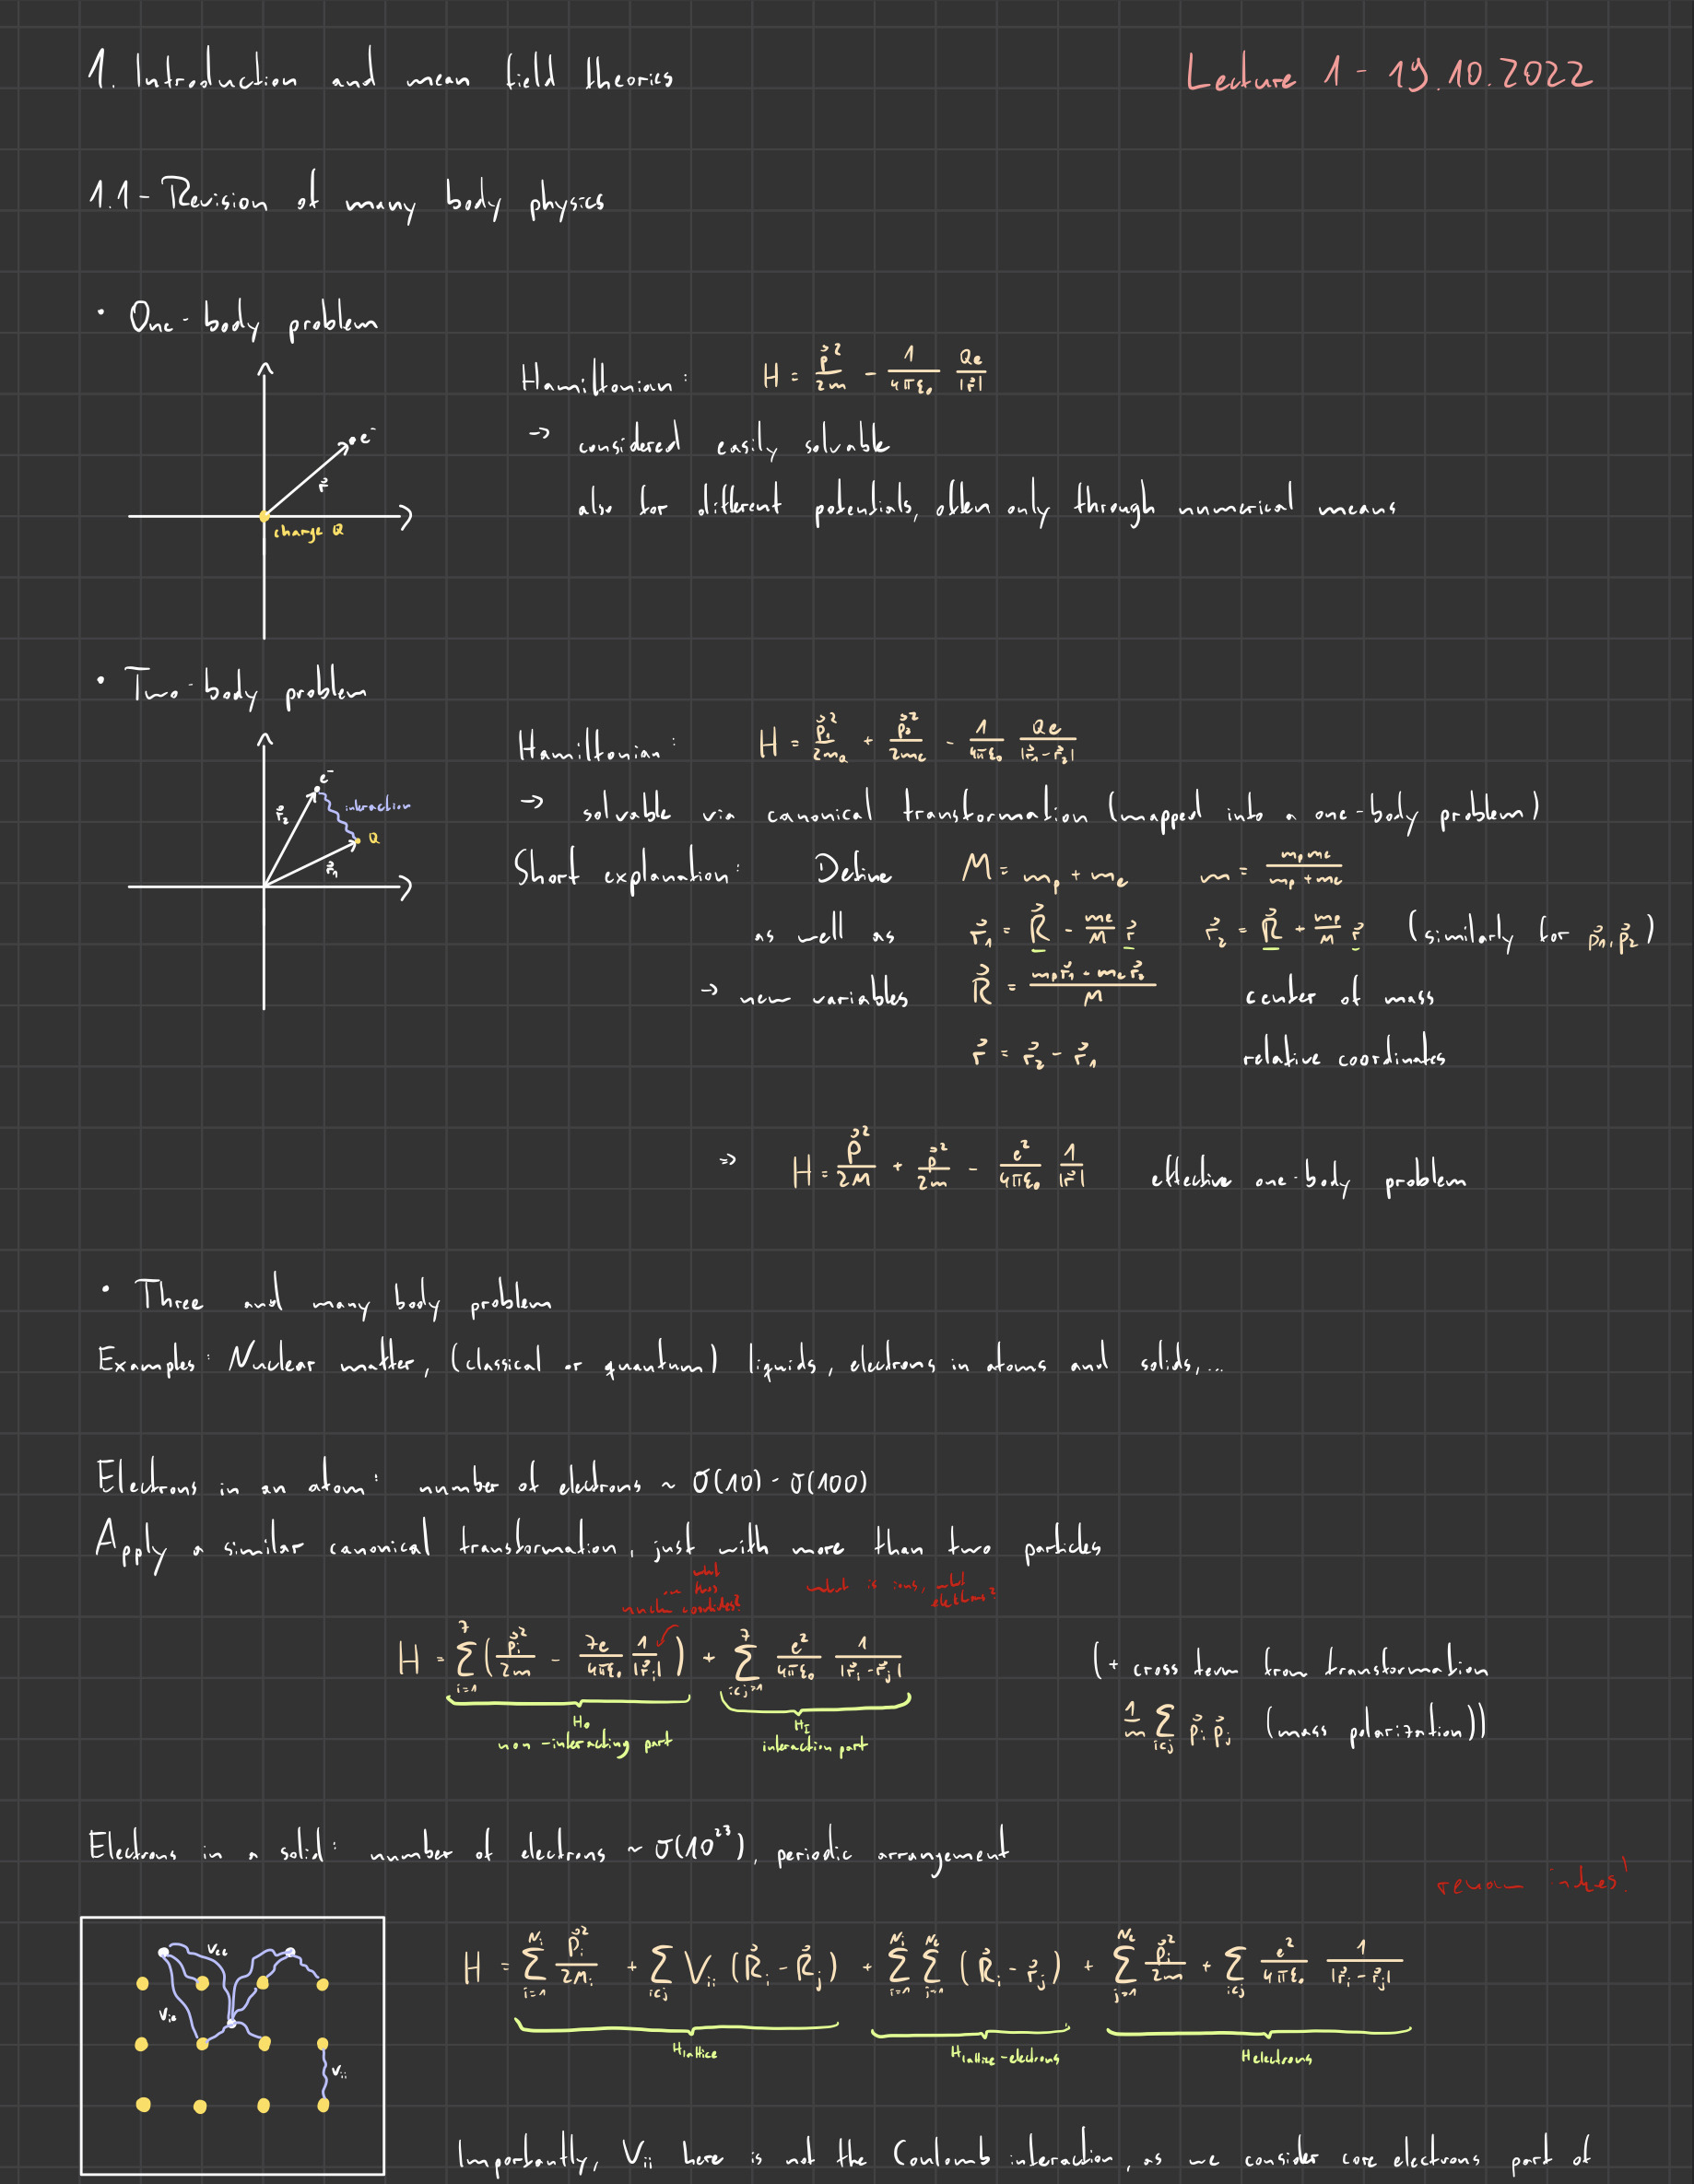 1. Introduction and mean field theories
Lecture 1 - 19.10.2022
1.1 - Revision of many body physics
• One-body problem
e⁻
r⃗
charge Q
Hamiltonian: H = p⃗²/2m - 1/4πε₀ Qe/|r⃗|
→ considered easily solvable
also for different potentials, often only through numerical means
• Two-body problem
e⁻
r⃗₂
interaction
Q
r⃗₁
Hamiltonian: H = p⃗₁²/2m_Q + p⃗₂²/2m_e - 1/4πε₀ Qe/|r⃗₁-r⃗₂|
→ solvable via canonical transformation (mapped into a one-body problem)
Short explanation: Define M = m_p + m_e m = m_p m_e/m_p + m_e
as well as r⃗₁ = R⃗ - m_e/M r⃗ r⃗₂ = R⃗ + m_p/M r⃗ (similarly for p⃗₁, p⃗₂)
→ new variables R⃗ = m_p r⃗₁ - m_e r⃗₂/M center of mass
r⃗ = r⃗₂ - r⃗₁ relative coordinates
⇒ H = P⃗²/2M + p⃗²/2m - e²/4πε₀ 1/|r⃗| effective one-body problem
• Three and many body problem
Examples: Nuclear matter, (classical or quantum) liquids, electrons in atoms and solids,...
Electrons in an atom: number of electrons ~ O(10) - O(100)
Apply a similar canonical transformation, just with more than two particles
what is ions, what
electrons?
H = Σ_{i=1}^{7} (p⃗ᵢ²/2m - 7e/4πε₀ 1/|r⃗ᵢ|) + Σ_{i<j>1}^{7} e²/4πε₀ 1/|r⃗ᵢ-r⃗ⱼ| (+ cross term from transformation
H₀
non-interacting part
H_I
interaction part
1/m Σ_{i<j} p⃗ᵢ p⃗ⱼ (mass polarization))
Electrons in a solid: number of electrons ~ O(10²³), periodic arrangement
V_ee
V_ie
V_ii
H = Σ_{i=1}^{N_i} P⃗ᵢ²/2Mᵢ + Σ_{i<j} V_ii (R⃗ᵢ - R⃗ⱼ) + Σ_{i=1}^{N_i} Σ_{j=1}^{N_e} (R⃗ᵢ - r⃗ⱼ) + Σ_{j=1}^{N_e} p⃗ᵢ²/2m + Σ_{i<j} e²/4πε₀ 1/|r⃗ᵢ-r⃗ⱼ|
H_lattice
H_lattice-electrons
H_electrons
Importantly, V_ii here is not the Coulomb interaction, as we consider core electrons part of